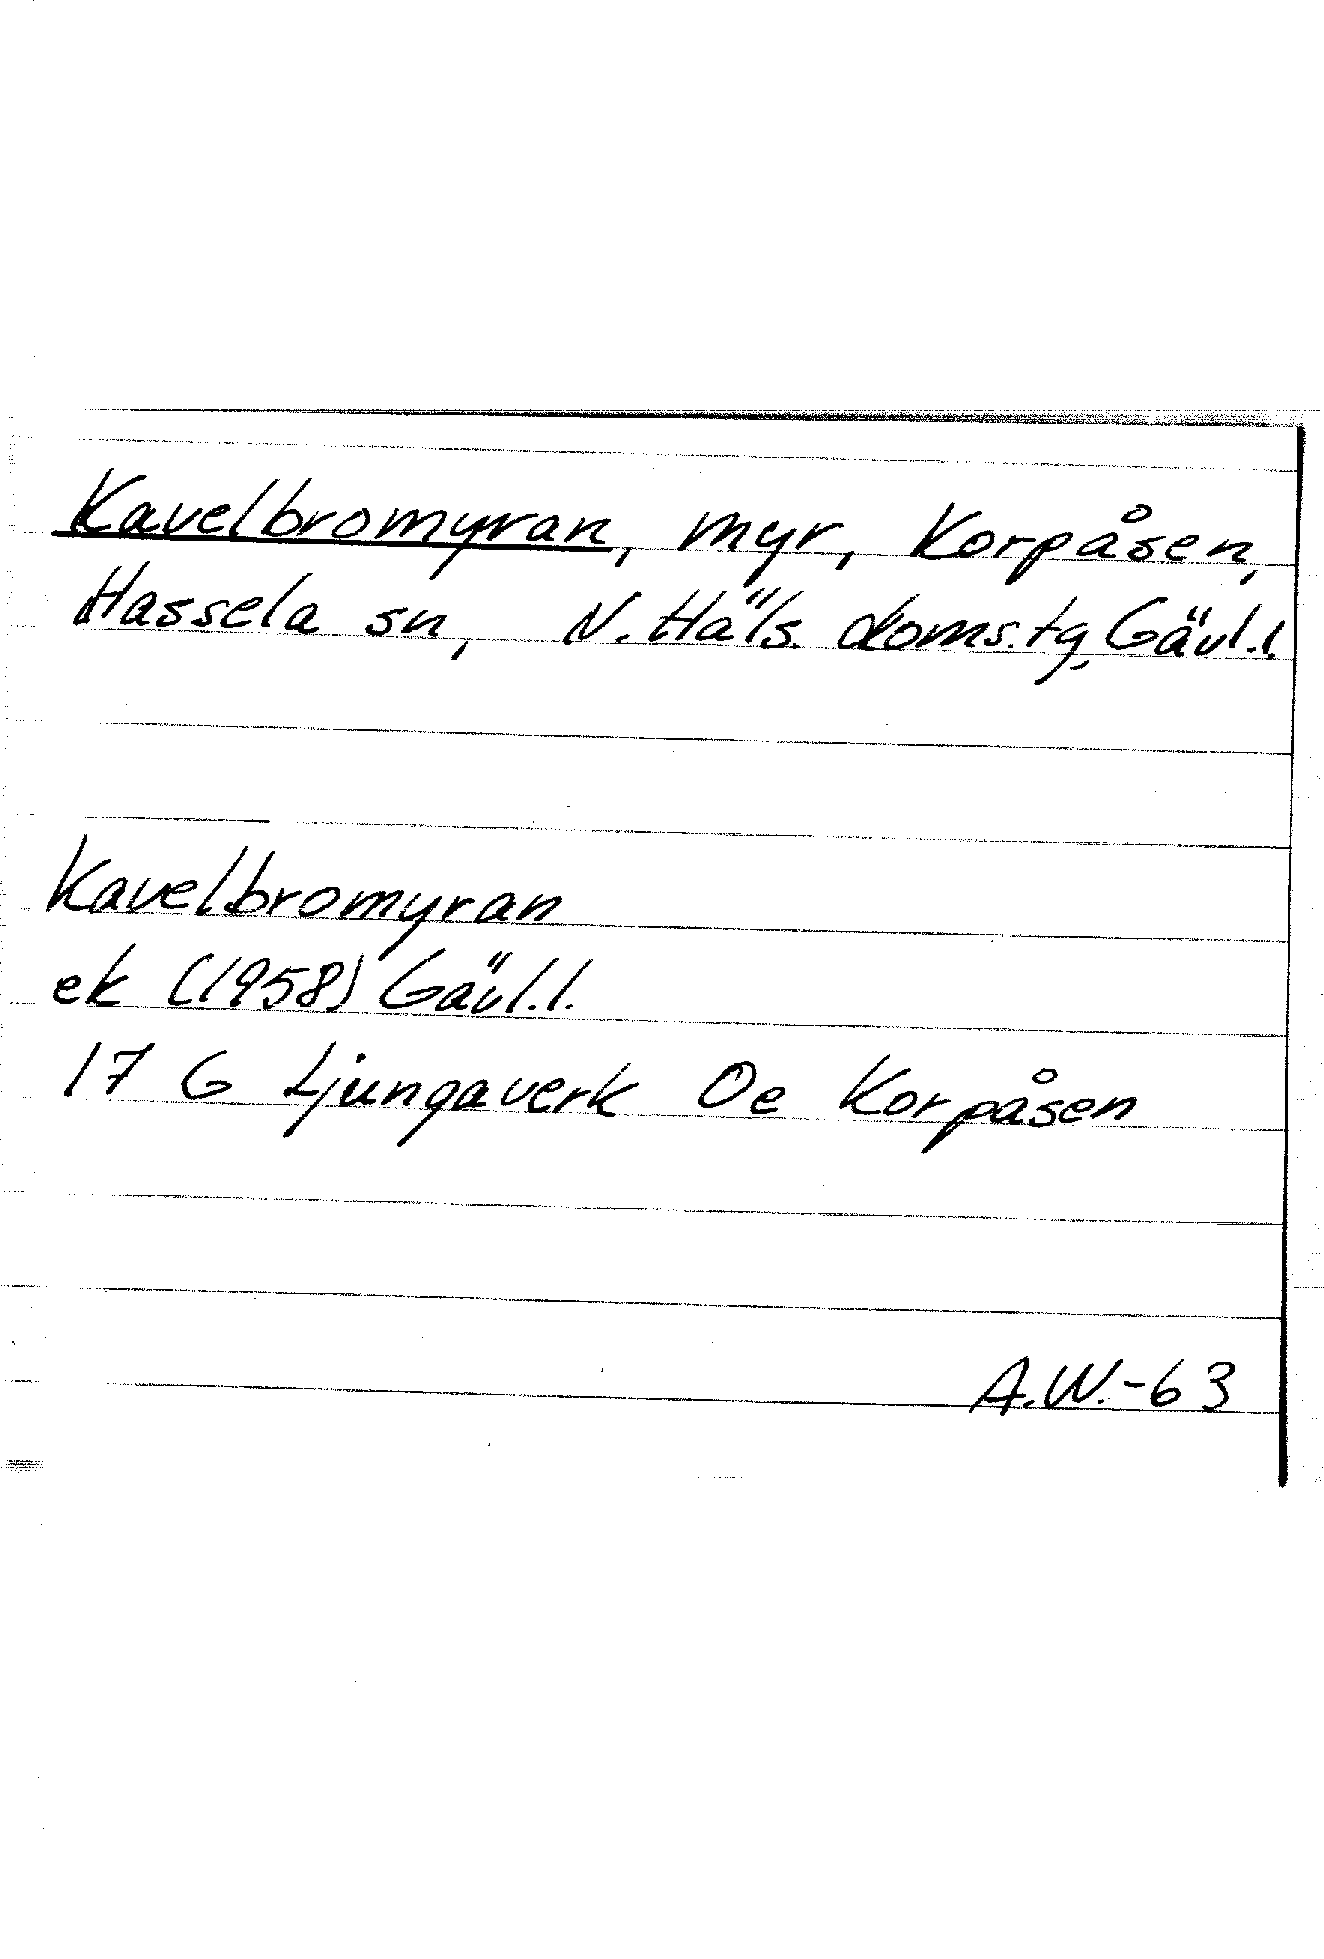 Kavelbromyran, myr, Korpåsen,
Hassela sn, N. Häls. doms.tg, Gävl.l.
Kavelbromyran
ek (1958) Gävl.l.
17 G Ljungaverk Oe Korpåsen
A.W.-63